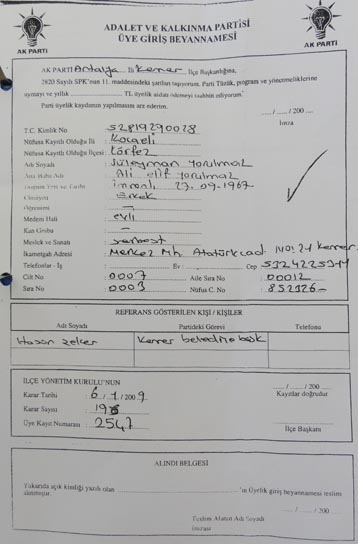 ADALET VE KALKINMA PARTİSİ
ÜYE GİRİŞ BEYANNAMESİ
AK PARTİ
AK PARTİ
AK PARTİ Antalya İli Kemer İlçe Başkanlığına,
2820 Sayılı SPK'nun 11. maddesindeki şartları taşıyorum. Parti Tüzük, program ve yönetmeliklerine
uymayı ve yıllık TL üyelik aidatı ödemeyi taahhüt ediyorum.
Parti üyelik kaydının yapılmasını arz ederim.
..... / ..... /200 ....
İmza
T.C. Kimlik No : 52819290028
Nüfusa Kayıtlı Olduğu İli : Kocaeli
Nüfusa Kayıtlı Olduğu İlçesi : Körfez
Adı Soyadı : Süleyman Yorulmaz
Ana Baba Adı : Ali elif Yorulmaz
Doğum Yeri ve Tarihi : 27.09.1967
Cinsiyeti : Erkek
Öğrenimi : –
Medeni Hali : evli
Kan Grubu : –
Meslek ve Sanatı : serbest
İkametgah Adresi : Merkez Mh. Atatürk cad. Kemer
Telefonlar - İş : Ev : Cep
Cilt No : 0007 Aile Sıra No : 00012
Sıra No : 0003 Nüfus C. No :
REFERANS GÖSTERİLEN KİŞİ / KİŞİLER
Adı Soyadı Partideki Görevi Telefonu
Hasan Kemer
İLÇE YÖNETİM KURULU'NUN
Karar Tarihi : 6 / 1 / 200 9
Karar Sayısı :
Üye Kayıt Numarası : 2547
..... / ..... /200 ....
Kayıtlar doğrudur
İlçe Başkanı
ALINDI BELGESİ
Yukarıda açık kimliği yazılı olan 'ın Üyelik giriş beyannamesi teslim
alınmıştır.
Teslim Alanın Adı Soyadı
İmzası